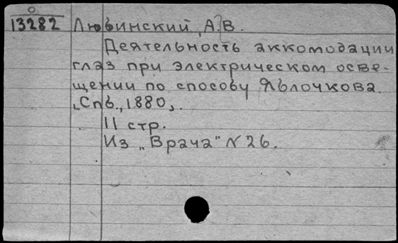 0
13282 Любинский, А. В.
Деятельность аккомодации
глаз при электрическом осве-
щении по способу Яблочкова.
„Спб., 1880,.
11 стр.
Из „Врача" №26.